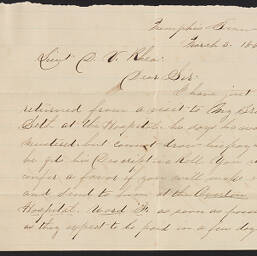 Memphis Tenn
March 3. 186
Lieut D. V. Rhea.
Dear Sir.
I have just
returned from a visit to my Bro
Seth at the Hospital. he says he was
mustered but cannot draw his pay
be get his Descriptive Roll You
confer a favor if you will make
and send to him at the Overton
Hospital, Word F. as soon as poss
as they expect to be paid in a few day